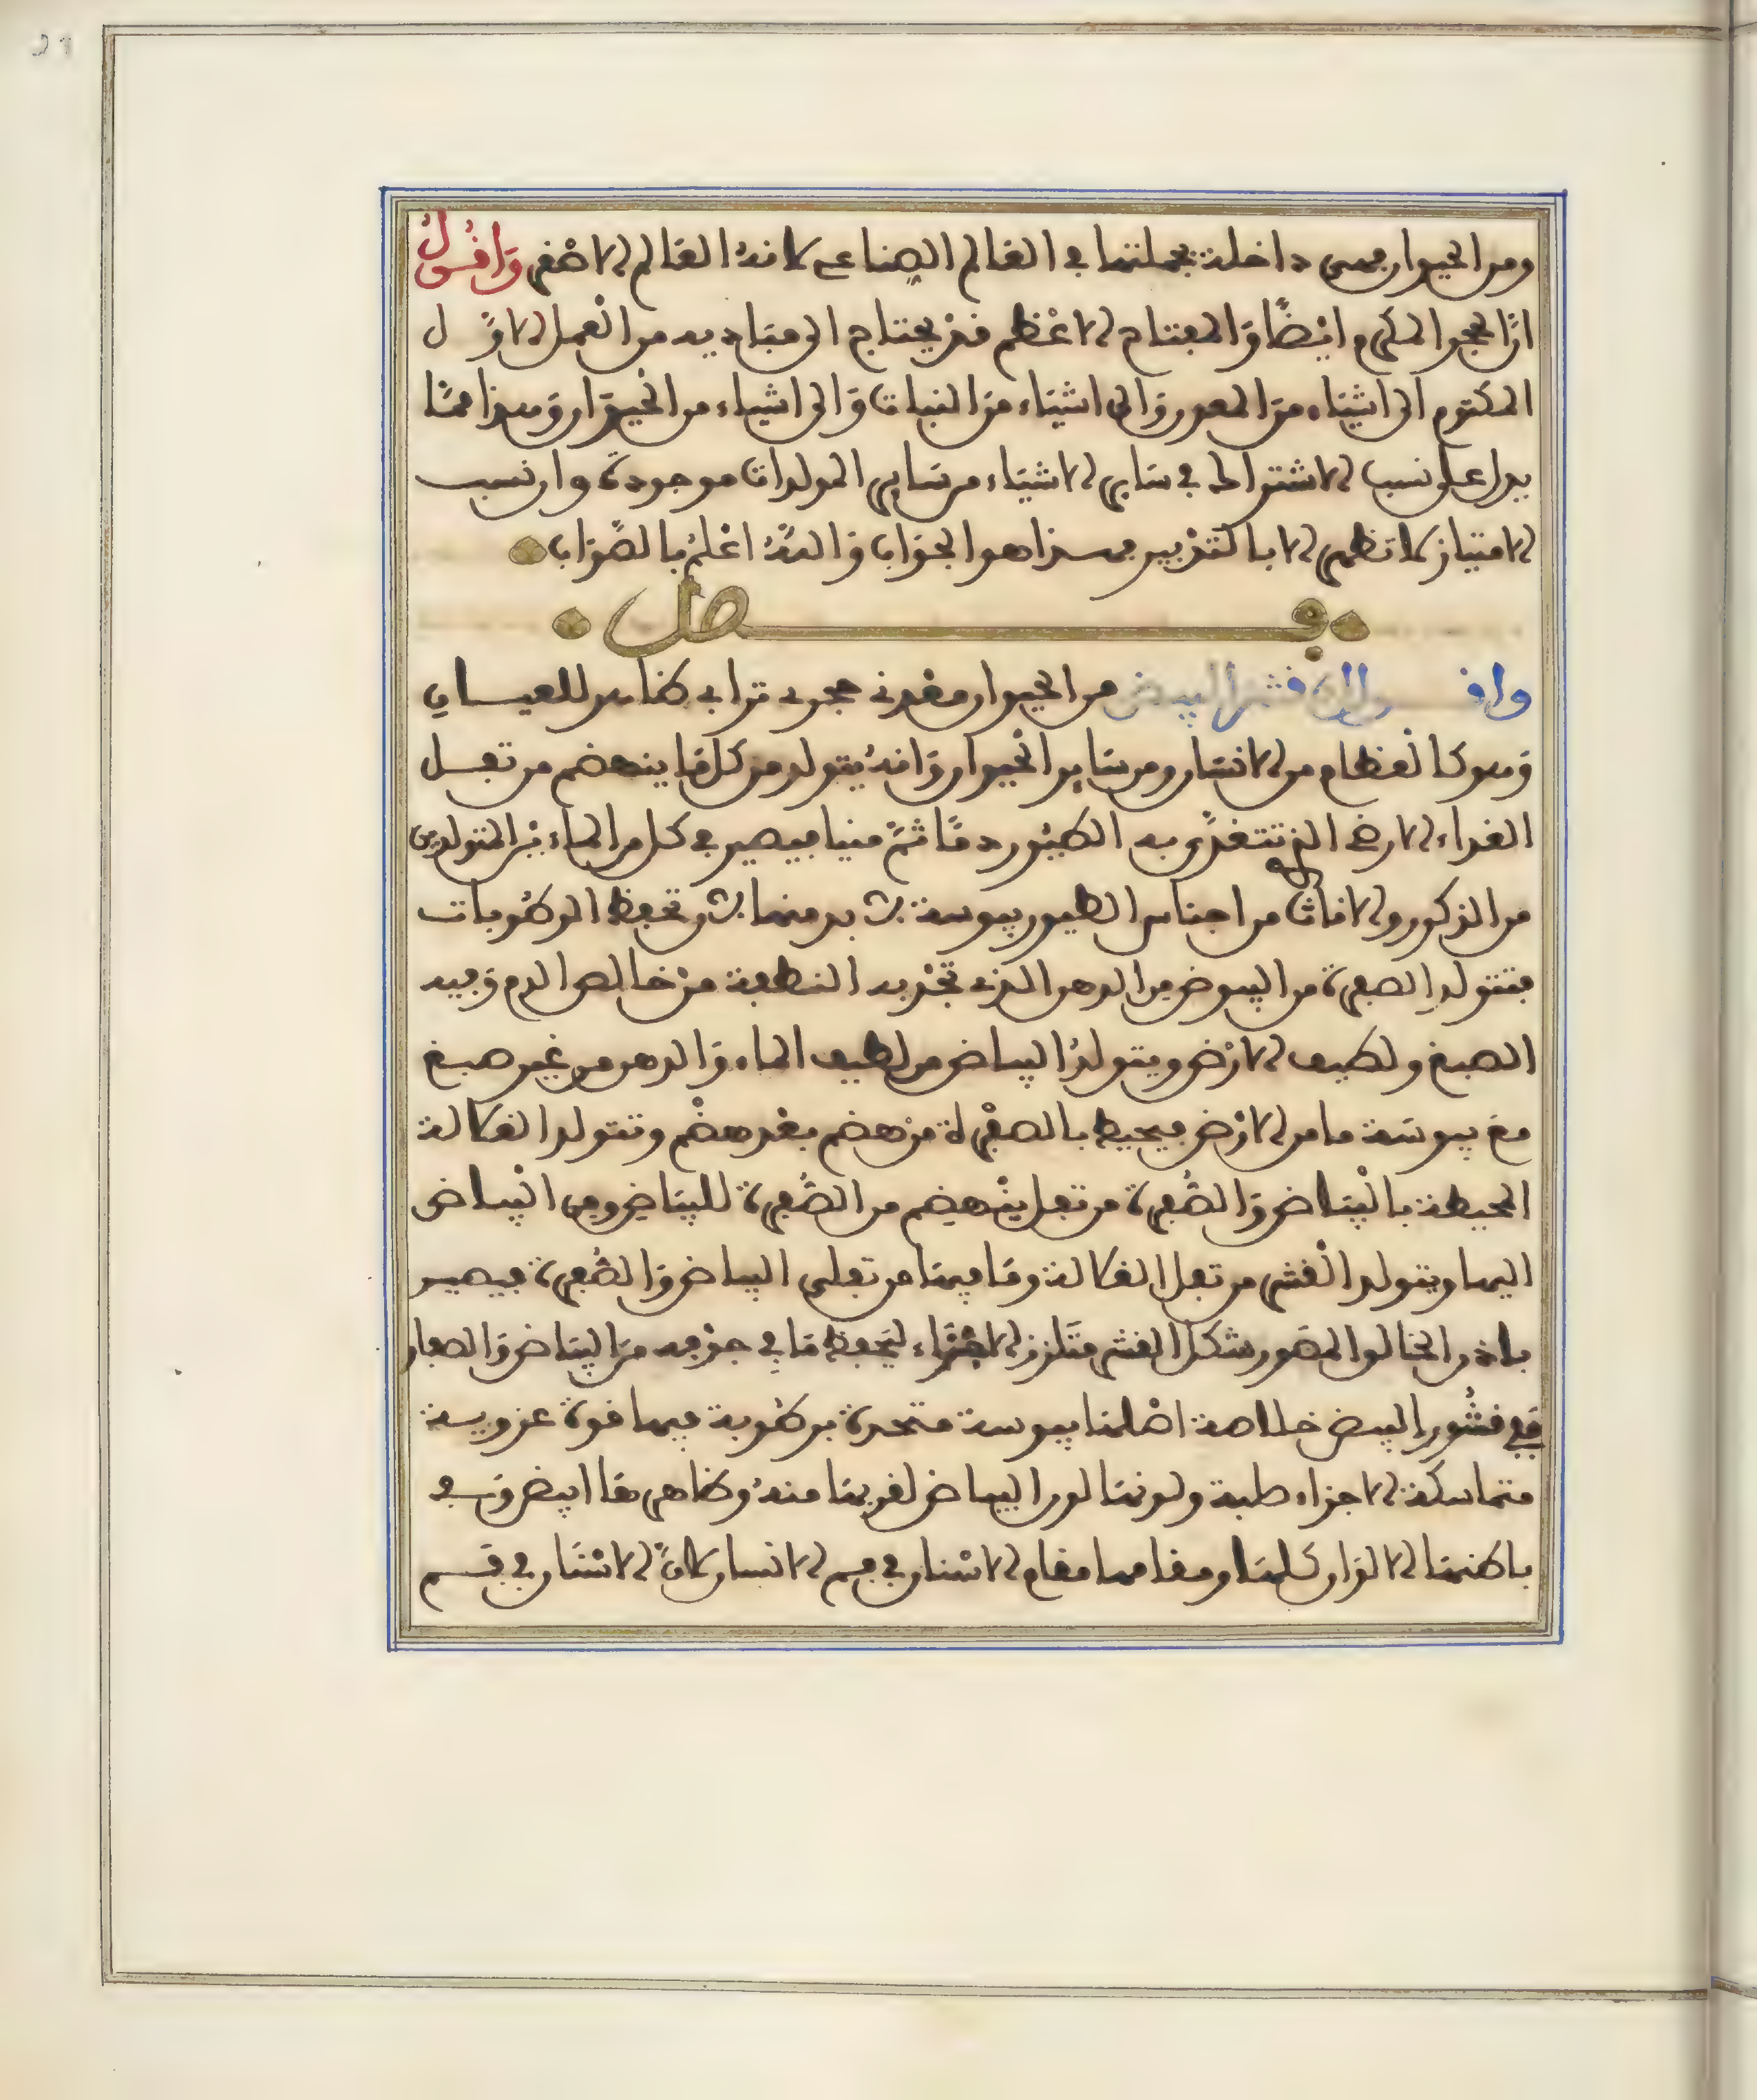 ومن الحيوان فهي داخلة بجملتها في العالم الصناعي لانه العالم الاصغر وَاقُولُ
انّ الحجر المكرم ايْضًا وَالمفتاح الاعْظم فقد يحتاج الى مبَاديه من الْعمل الاوّل
المكتوم الى اشيَاء منَ المعدن وَالى اشيَاء منَ النبات وَالى اشياء من الحيوَان وَهذا ممَّا
يدل على نسب الاشتراك في سَاير الاشيَاء من سَاير المولدات موجودة وان نسب
الامتياز لا تظهر الا بالتدْبير فهذا هو الجوَاب وَاللهُ اعْلمُ بالصّوَاب
فصل
واقول ان قشر البيض من الحيوان معْدني حجري ترابي ظاهر للعيان
وَهو كالعظام من الانسَان ومن سَاير الحيوان وَانهُ يتولد من كل مَا ينهضم من ثفل
الغذاء الارضي الذي تتغذّى به الطيُور دمًا ثمّ منيا فيصير في كل من الماءيْن المتولدين
من الذكور والاناث من اجناس الطيور يبوسة لا بد منها لان تحفظ الرطُوبات
فتتولد الصفرة من البيوض من الدهن الذي تجْذبه النطفة منْ خالص الدم وَفيه
الصبغ ولطيف الارْض ويتولدُ البياض من لطيف الماء وَالدهن من غير صبغ
معَ يبوسَة ما من الارْض فيحيط بالصفْرة منْ هضم بعْد هضْم وتتولد الغلالة
المحيطة بالْبيَاض وَالصُّفرة من ثفل ينْهضم من الصُّفرة للبيَاض ومن الْبياض
اليها ويتولد الْقشر من ثفل الغلالة ومَا فيها من ثفلي البياض وَالصُّفرة فيصير
باذن الخالق المصَور شكل القشر متَلزز الاجْزَاء ليَحفظ مَا في جوْفه منَ البيَاض وَالصفار
فَفي قشُور البيض خلاصة اصْلها يبوسة متحدة برطُوبة فيها قوة غروية
متماسكة الاجزاء صلبة ولونهَا لون البياض لقربهَا منهُ وظاهرهَا ابيض وَفي
باطنهَا الالوَان كلهَا ومقامها مقام الاسْنان في فم الانسان لانّ الاسْنَان في قسم